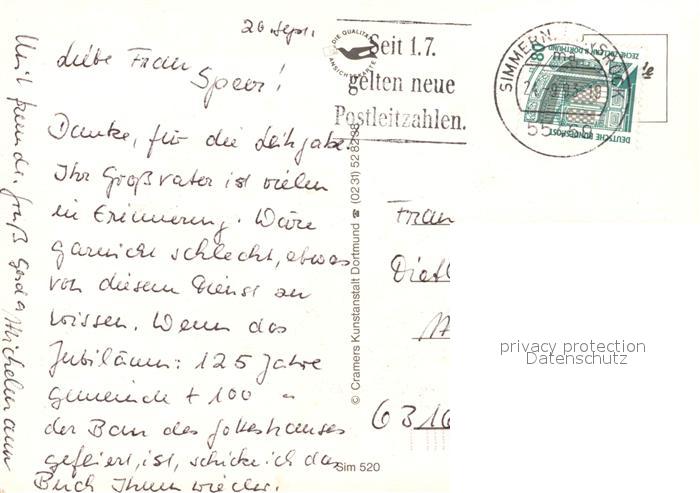 20. Sept.
Liebe Frau
Speer!
Danke, für die Leihgabe.
Ihr Großvater ist vielen
in Erinnerung. Wäre
garnicht schlecht, etwas
von diesem Dienst zu
wissen. Wenn das
Jubiläum: 125 Jahre
Gemeinde + 100 "
der Bau des Gotteshauses
gefeiert, ist, schicke ich das
Buch Ihnen wieder.
Mit freundl. Gruß Gerda
DIE QUALITÄTS
ANSICHTSKARTE
Seit 1.7.
gelten neue
Postleitzahlen.
SIMMERN, HUNSRÜCK
ma
DEUTSCHE BUNDESPOST
ZECHE ZOLLERN II DORTMUND
80
© Cramers Kunstanstalt Dortmund ☎ (0231) 528298
Frau
privacy protection
Datenschutz
Sim 520